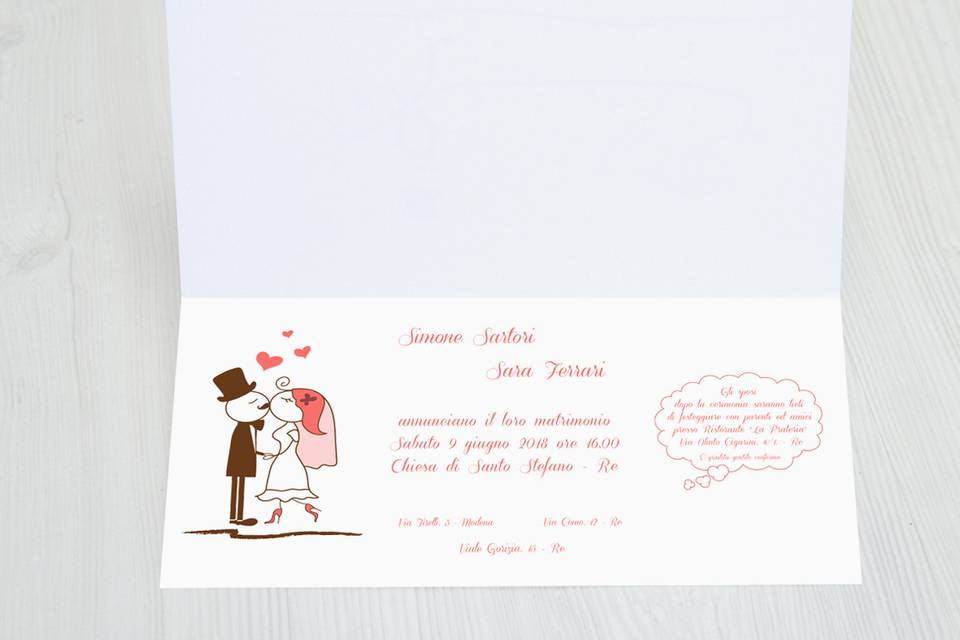 Simone Sartori
Sara Ferrari
annunciano il loro matrimonio
Sabato 9 giugno 2018 ore 16.00
Chiesa di Santo Stefano - Re
Via Tirelli, 5 - Modena
Via Como, 12 - Re
Viale Gorizia, 18 - Re
Gli sposi
dopo la cerimonia saranno lieti
di festeggiare con parenti ed amici
presso Ristorante "La Prateria"
Via Oliuto Cigarini, 8/1, - Re
È gradita gentile conferma